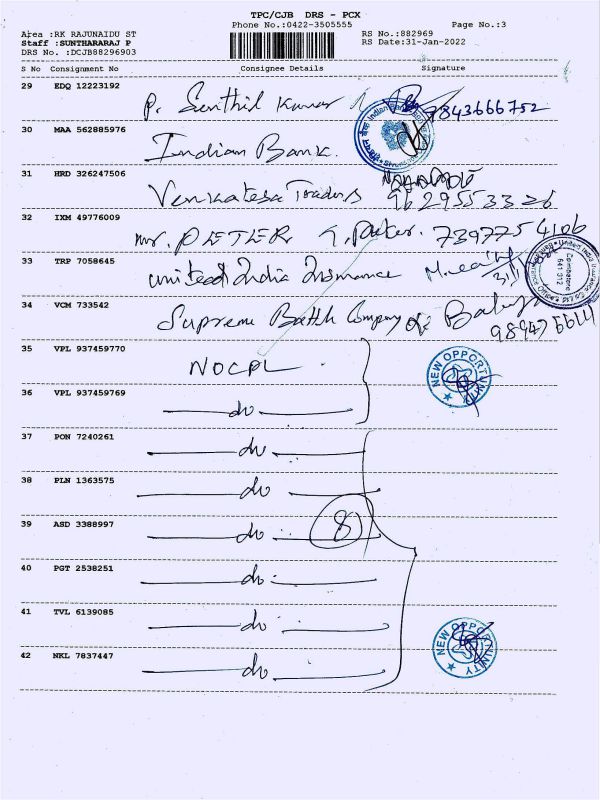 TPC/CJB DRS - PCX
Phone No.:0422-3505555 Page No.:3
Area :RK RAJUNAIDU ST RS No.:882969
Staff :SUNTHARARAJ P RS Date:31-Jan-2022
DRS No. :DCJB88296903
S No Consignment No Consignee Details Signature
29 EDQ 12223192 P. Senthil Kumar 7843666752
30 MAA 562885976 Indian Bank.
31 HRD 326247506 Venkatesa Traders 9629553326
32 IXM 49776009 Mr. PETER 7397754106
33 TRP 7058645 United India Insurance
34 VCM 733542 Supreme Company
35 VPL 937459770 NOCPL NEW OPPORTUNITY
36 VPL 937459769 do
37 PON 7240261 do
38 PLN 1363575 do
39 ASD 3388997 do 8
40 PGT 2538251 do
41 TVL 6139085 do
42 NKL 7837447 do NEW OPPORTUNITY